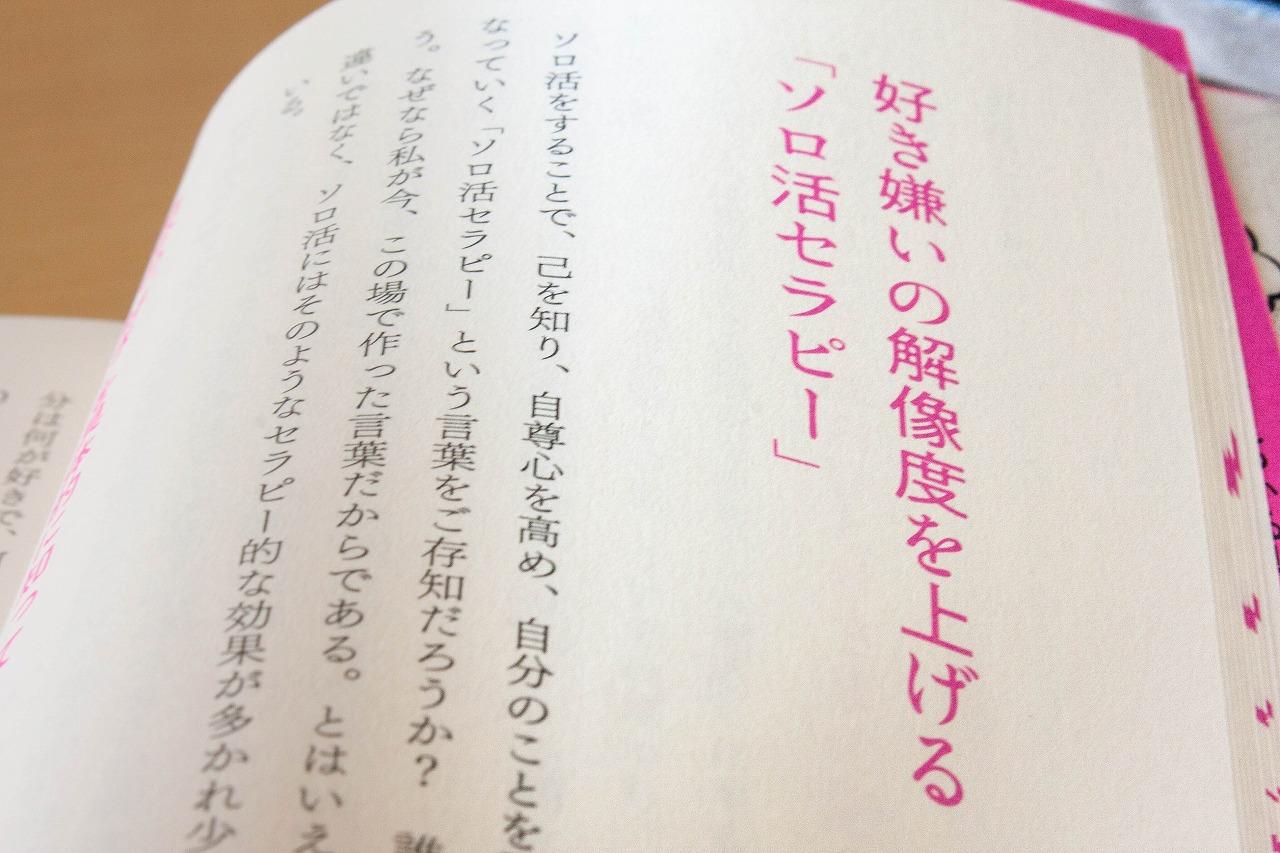 好き嫌いの解像度を上げる
「ソロ活セラピー」
ソロ活をすることで、己を知り、自尊心を高め、自分のことを
なっていく「ソロ活セラピー」という言葉をご存知だろうか? 誰
う。なぜなら私が今、この場で作った言葉だからである。とはいえ
違いではなく、ソロ活にはそのようなセラピー的な効果が多かれ少
いる。
分は何が好きで、